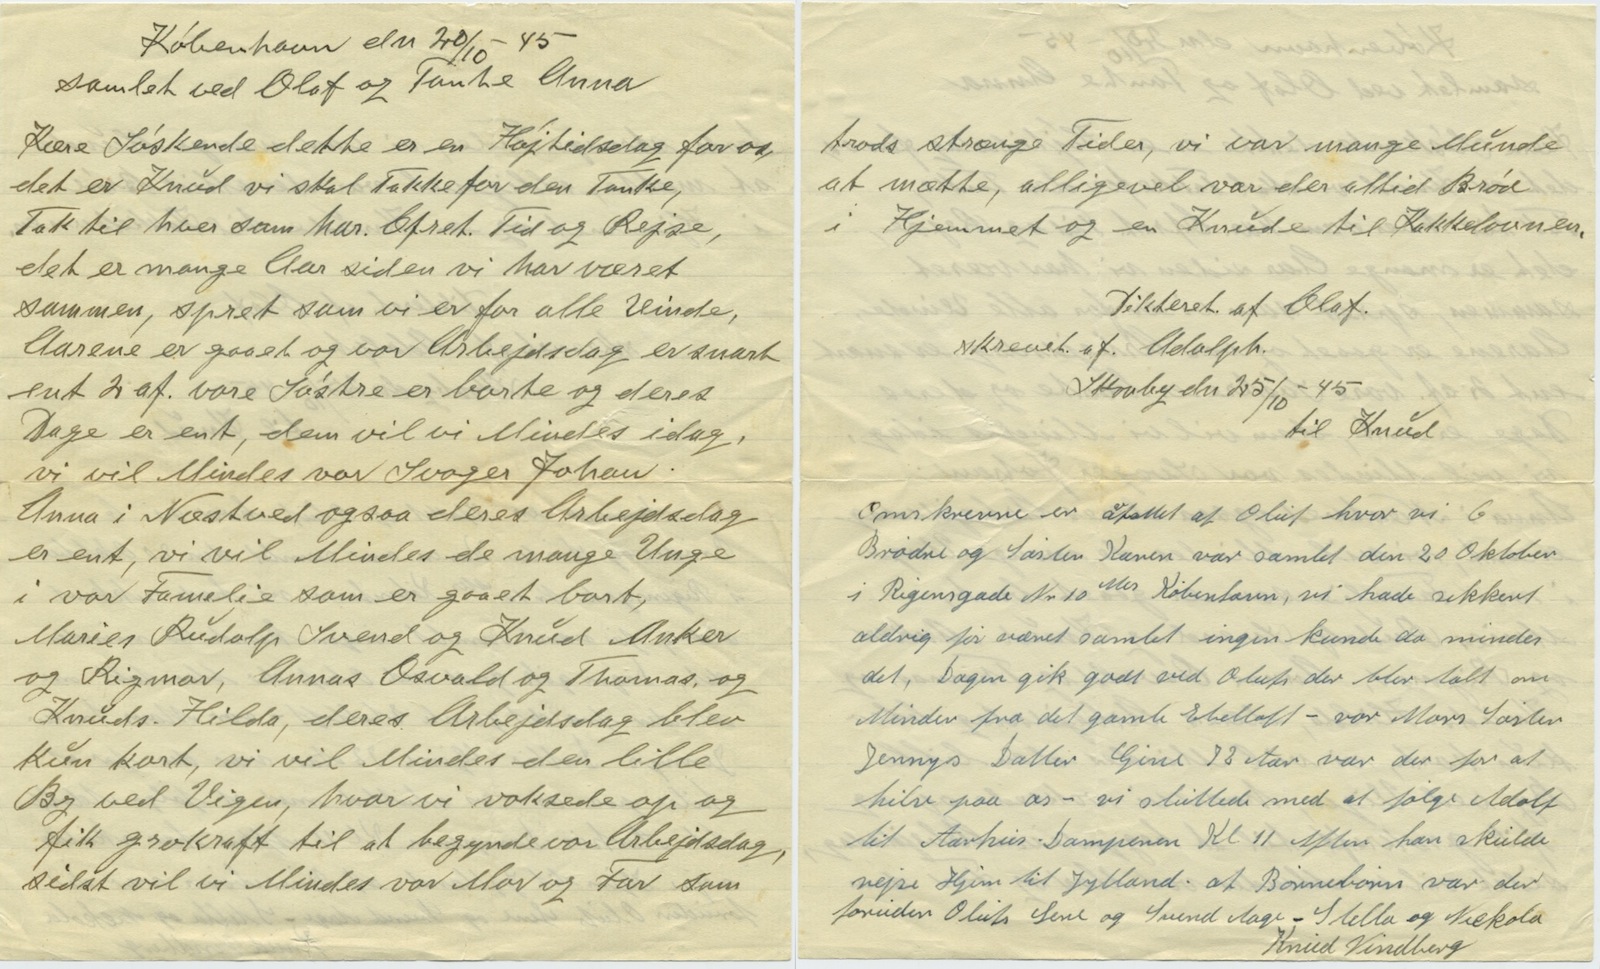 København den 20/10-45
samlet ved Olaf og Tanthe Anna
Kære Søskende dette er en Højtidsdag for os,
det er Knud vi skal Takke for den Tanke,
Tak til hver som har. Ofret. Tid og Rejse,
det er mange Aar siden vi har været
sammen, spret som vi er for alle Vinde,
Aarene er gaaet og vor Arbejdsdag er snart
ent 2 af. vore Søstre er borte og deres
Dage er ent, dem vil vi Mindes idag,
vi vil Mindes vor Svoger Johan.
Anna i Næstved ogsaa deres Arbejdsdag
er ent, vi vil Mindes de mange Unge
i vor Famelie som er gaaet bort,
Maries Rudolp Svend og Knud Anker
og Rigmor, Annas Osvald og Thomas, og
Knuds. Hilda, deres Arbejdsdag blev
kun kort, vi vil Mindes den lille
By ved Vigen, hvor vi voksede op og
fik grokraft til at begynde vor Arbejdsdag,
sidst vil vi Mindes vor Mor og Far som
trods strænge Tider, vi var mange Munde
at mætte, alligevel var der altid Brød
i Hjemmet og en Knude til Kakkelovnen.
Dikteret. af Olaf.
skrevet. af. Adolph.
den 25/10-45
til Knud
er af Oluf hvor vi 6
Brødre og Søster Karen var samlet den 20 Oktober
i Rigensgade Nr 10 København, vi hade sikkert
aldrig før været samlet ingen kunde da mindes
det, Dagen gik godt ved Olufs der blev talt om
Minder fra det gamle Ebeltoft - vor Mors Søster
Jennys Datter Gine 78 Aar var der for at
hilse paa os - vi sluttede med at følge Adolf
til Aarhus-Damperen Kl 11 Aften han skulde
rejse Hjem til Jylland. af Børnebørn var der
foruden Olufs Lene og Svend Aage - Stella og Nickola
Knud Vindberg